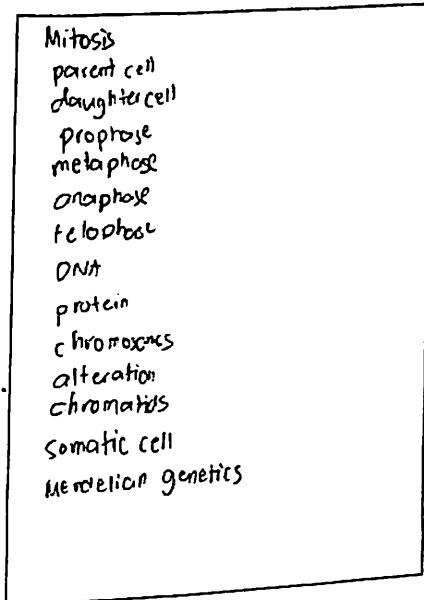 Mitosis
parent cell
daughter cell
prophase
metaphase
anaphase
telophase
DNA
protein
chromosomes
alteration
chromatids
somatic cell
Mendelian genetics